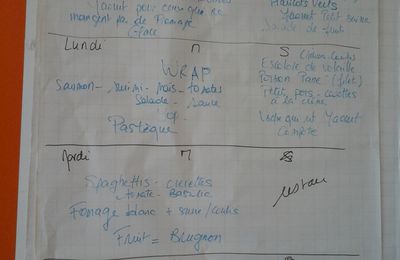 Yaourt pour ceux qui ne
mangent pas de Fromage
Haricots Verts
Yaourt Petit Suisse
Salade de fruit
Lundi
WRAP
Saumon - surimi - maïs - tomates
Salade - sauce
Pastèque
S
Escalope de volaille
Poisson Pané (filet)
Petit pois - carottes
à la crème
Yaourt
Compote
Mardi
Spaghettis - crevettes
tomate - Basilic
Fromage blanc + sucre / coulis
Fruit = Brugnon
restau